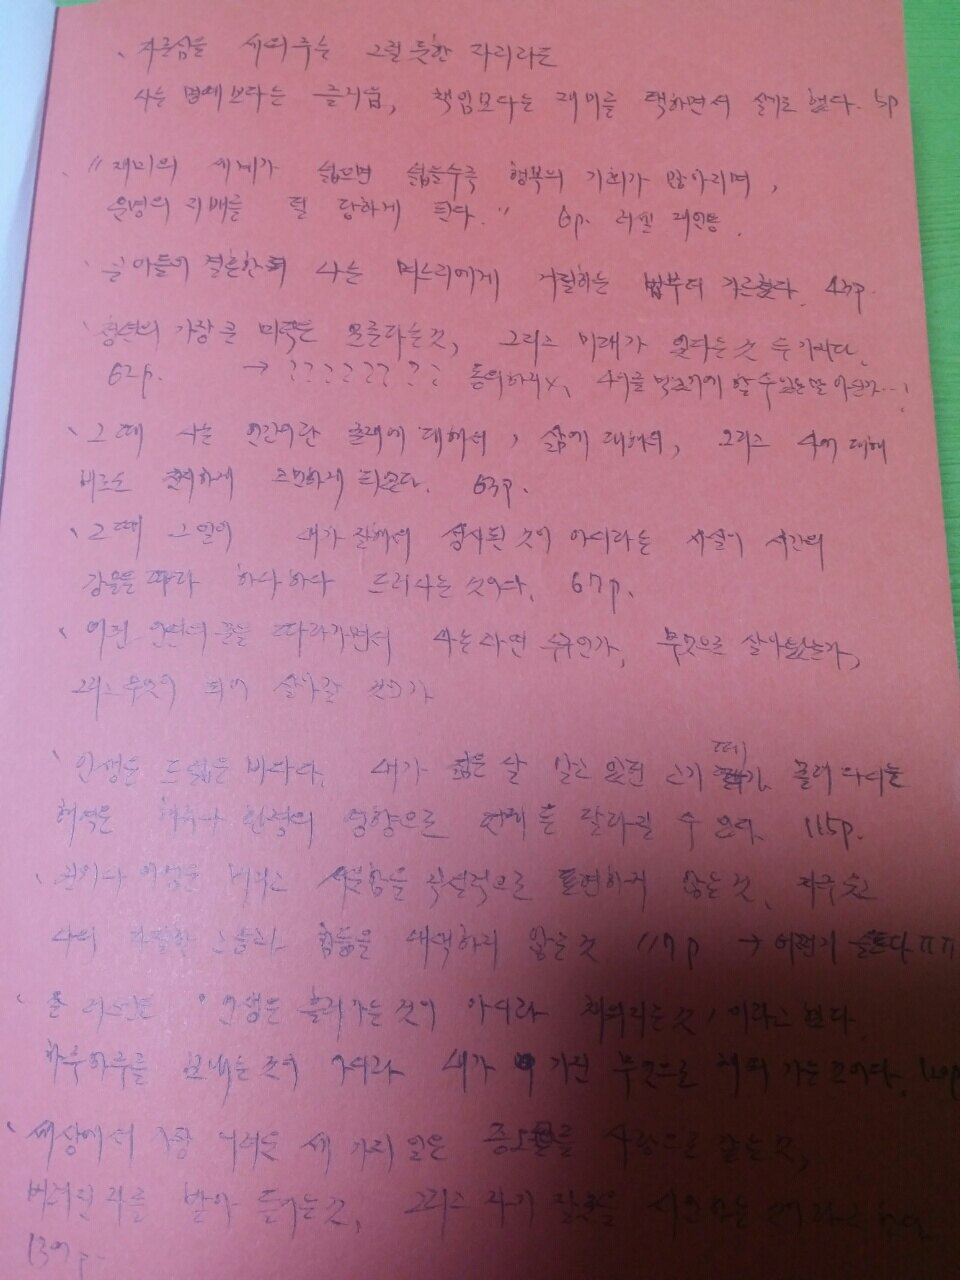 、자존심을 세워주는 그럴듯한 자리라도
나는 명예보다는 즐거움, 책임보다는 재미를 택하면서 살기로 했다. 5p
、"재미의 세계가 넓으면 넓을수록 행복의 기회가 많아지며,
운명의 지배를 덜 당하게 된다." 6p. 러셀 재인용.
、큰 아들이 결혼한 뒤 나는 며느리에게 거절하는 법부터 가르쳤다. 43p.
、청년의 가장 큰 미덕은 모른다는 것, 그리고 미래가 있다는 것 두가지다.
62p. → ???????? 동의하지x, 나이를 먹은기에 할 수 있는 말 아닌가...!
、그때 나는 인간이란 존재에 대해서, 삶에 대해서, 그리고 나에 대해
비로소 겸허하게 되었다. 63p.
、그때 그일이 내가 잘해서 성사된 것이 아니라는 사실이 시간의
강물을 따라 하나하나 드러나는 것이다. 67p.
、이런 을 따라가면서 나는 과연 누구인가, 무엇으로 살아왔는가,
그리고 무엇이 되어 살아갈 것인가
、인생은 드넓은 바다다. 내가 잘 알고 있던 고기 떼가 몰려다니는
해역은 해류나 환경의 영향으로 언제든 달라질 수 있다. 115p.
、 을 버리고 을 직설적으로 표현하지 않는 것, 자주
나의 힘듦을 내색하지 않는 것 117p → 이런게 슬프다 ㅠㅠ
、폴 은 '인생은 흘러가는 것이 아니라 채워지는 것'이라고 했다
하루하루를 보내는 것이 아니라 내가 가진 무엇으로 채워 가는 것이다.
、세상에서 가장 어려운 세 가지 일은 증오를 사랑으로 갚는 것,
버려진 자를 받아 들이는 것, 그리고 자기 잘못을
139p.